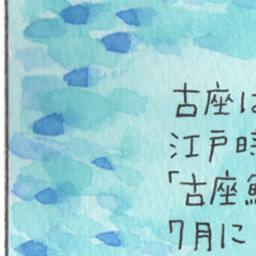 古座は
江戸時
「古座鯨
7月に